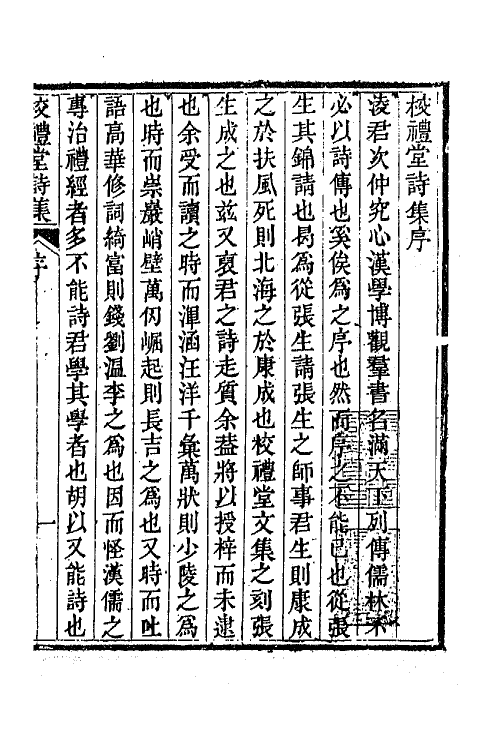 校禮堂詩集序
淩君次仲究心漢學博觀羣書名滿天下列傳儒林不
必以詩傳也奚俟爲之序也然而序之不能已也從張
生其錦請也曷爲從張生請張生之師事君生則康成
之於扶風死則北海之於康成也校禮堂文集之刻張
生成之也兹又裒君之詩走質余葢將以授梓而未逮
也余受而讀之時而渾涵汪洋千彙萬狀則少陵之爲
也時而崇巖峭壁萬仭崛起則長吉之爲也又時而吐
語高華修詞綺富則錢劉溫李之爲也因而怪漢儒之
專治禮經者多不能詩君學其學者也胡以又能詩也
校禮堂詩集
序
一